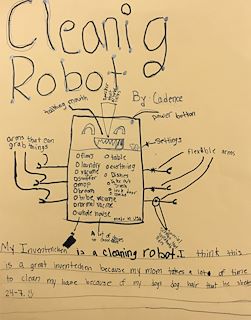 Cleanig
Robot
talking mouth
By: Cadence
power button
arms that can
grab things
settings
flexible arms
floors
table
laundry
everything
vacume
Dishes
mop
broom
normal vacume
whole house
made in USA
A lot of
My Inventchen is a cleaning robot. I think this
is a great inventchen because my mom takes a lot of time
to clean my home because of my dogs dog hair that he sheds
24-7.